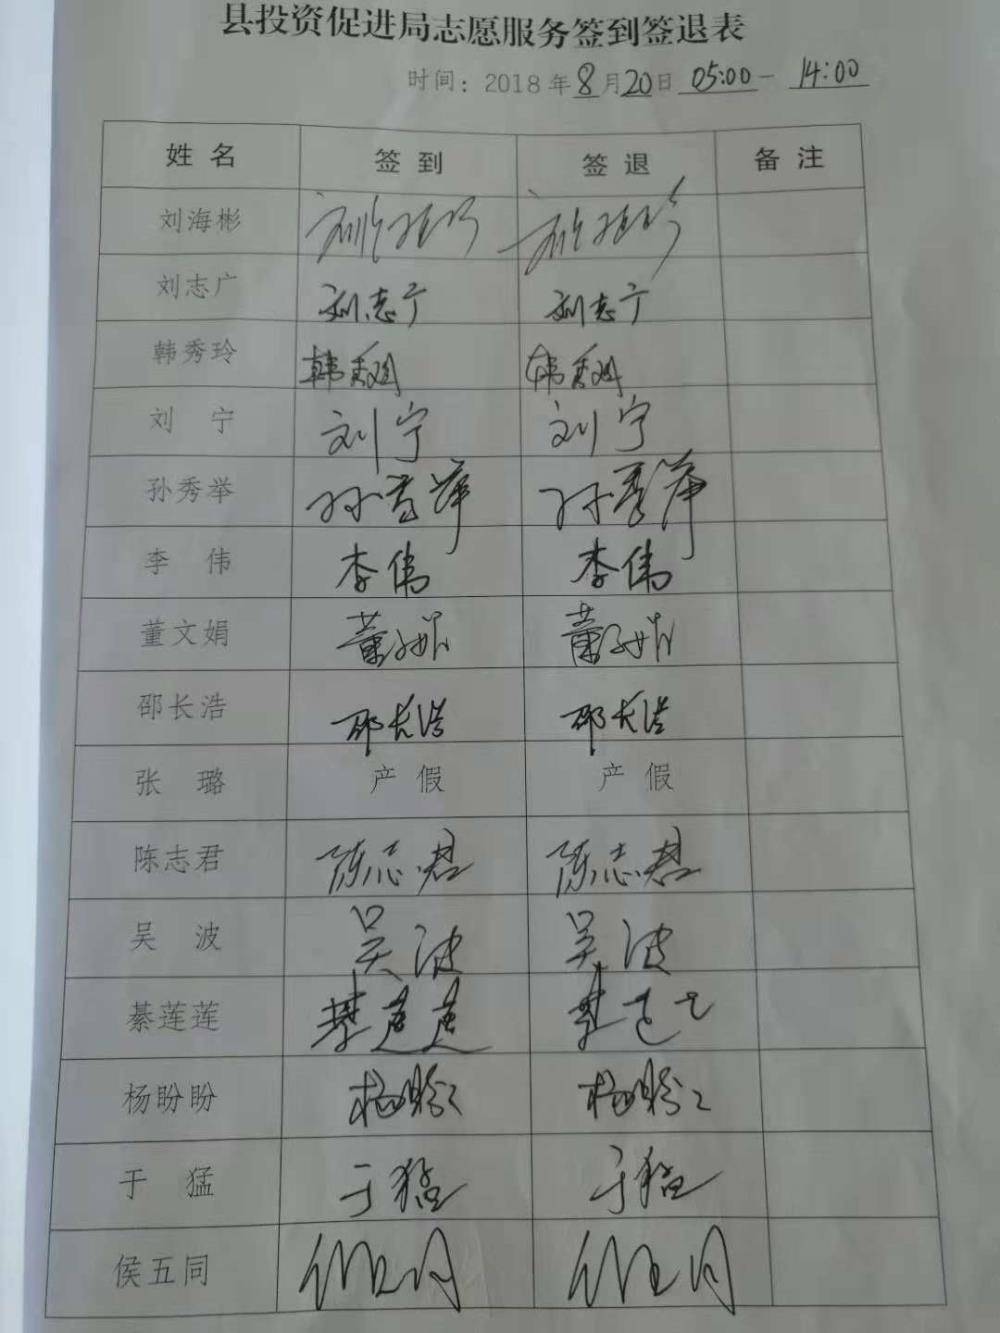 县投资促进局志愿服务签到签退表
时间：2018年8月20日 05:00 - 14:00
姓 名 签 到 签 退 备 注
刘海彬 刘海彬 刘海彬
刘志广 刘志广 刘志广
韩秀玲 韩秀玲 韩秀玲
刘 宁 刘宁 刘宁
孙秀举 孙秀举 孙秀举
李 伟 李伟 李伟
董文娟 董文娟 董文娟
邵长浩 邵长浩 邵长浩
张 璐 产 假 产 假
陈志君 陈志君 陈志君
吴 波 吴波 吴波
綦莲莲 綦莲莲 綦莲莲
杨盼盼 杨盼盼 杨盼盼
于 猛 于猛 于猛
侯五同 侯五同 侯五同